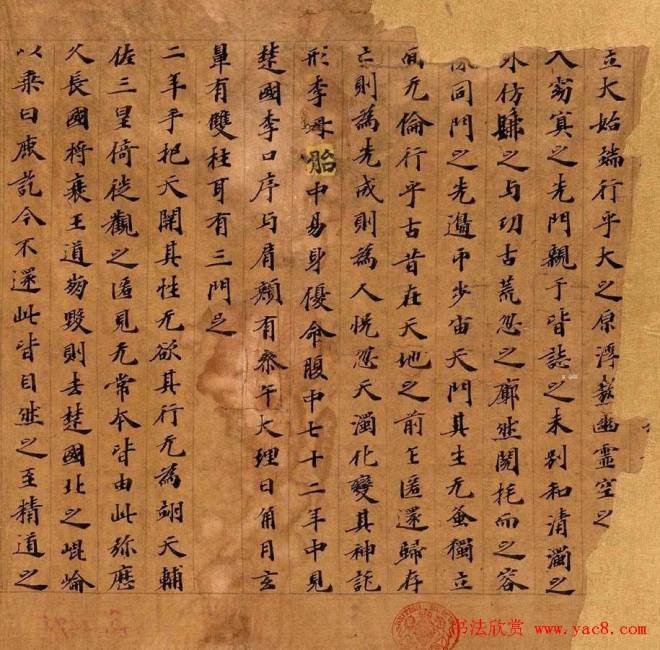 立大始端行乎大之原浮熬幽靈空之
入窈冥之先門親乎皆誌之未别和清濁之
仿歸之与功古荒忽之廓然閴托而之容
像同門之先邊帀步宙天門其生无蚤獨立
而无倫行乎古昔在天地之前乍匿還歸存
亡則為先成則為人怳忽天濁化變其神託
形李母胎中易身優命腹中七十二年中見
楚國李口序与肩頰有叅午大理日角月玄
鼻有雙柱耳有三門足
二年乎把天關其性无欲其行无為翊天輔
佐三皇倚徙觀之匿見无常本皆由此弥歷
久長國將衰王道崩毀則去楚國北之崐崘
以乗白鹿訖今不還此皆自然之至精道之
书法欣赏 www.yac8.com